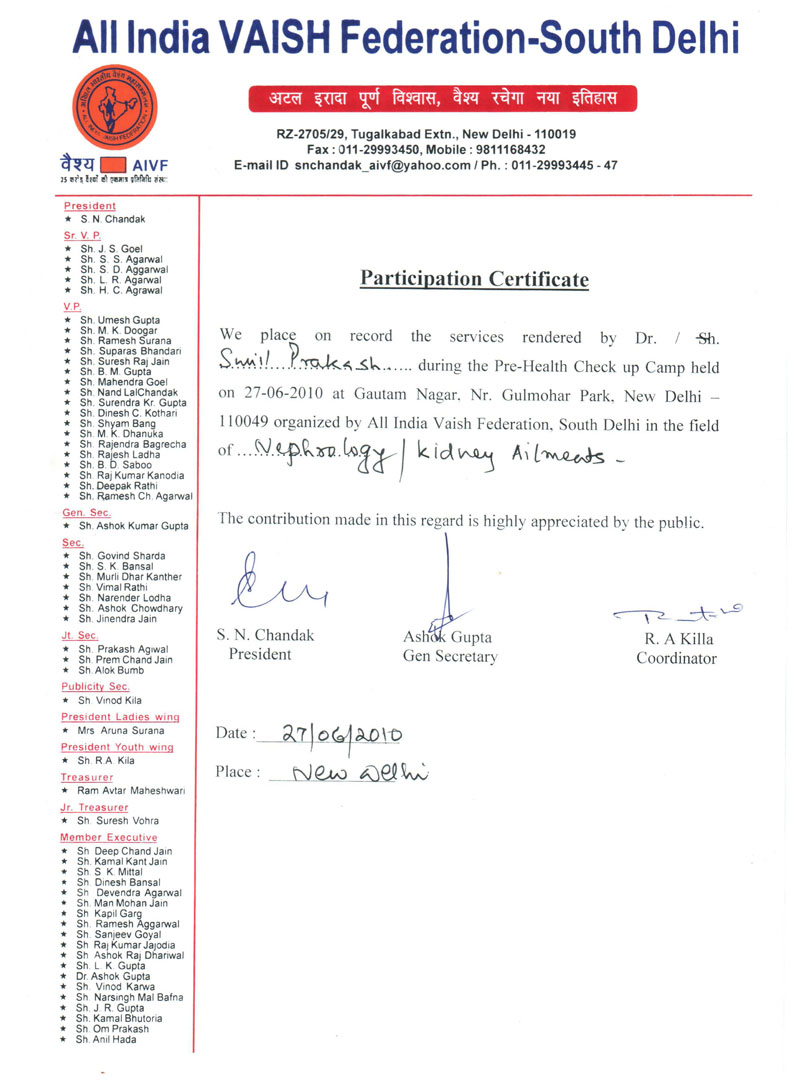 All India VAISH Federation-South Delhi
अटल इरादा पूर्ण विश्वास, वैश्य रचेगा नया इतिहास
RZ-2705/29, Tugalkabad Extn., New Delhi - 110019
Fax : 011-29993450, Mobile : 9811168432
E-mail ID snchandak_aivf@yahoo.com / Ph. : 011-29993445 - 47
वैश्य AIVF
25 करोड़ वैश्यों की एकमात्र प्रतिनिधि संस्था
President
★ S. N. Chandak
Sr. V. P.
★ Sh. J. S. Goel
★ Sh. S. S. Agarwal
★ Sh. S. D. Aggarwal
★ Sh. L. R. Agarwal
★ Sh. H. C. Agrawal
V.P.
★ Sh. Umesh Gupta
★ Sh. M. K. Doogar
★ Sh. Ramesh Surana
★ Sh. Suparas Bhandari
★ Sh. Suresh Raj Jain
★ Sh. B. M. Gupta
★ Sh. Mahendra Goel
★ Sh. Nand LalChandak
★ Sh. Surendra Kr. Gupta
★ Sh. Dinesh C. Kothari
★ Sh. Shyam Bang
★ Sh. M. K. Dhanuka
★ Sh. Rajendra Bagrecha
★ Sh. Rajesh Ladha
★ Sh. B. D. Saboo
★ Sh. Raj Kumar Kanodia
★ Sh. Deepak Rathi
★ Sh. Ramesh Ch. Agarwal
Gen. Sec.
★ Sh. Ashok Kumar Gupta
Sec.
★ Sh. Govind Sharda
★ Sh. S. K. Bansal
★ Sh. Murli Dhar Kanther
★ Sh. Vimal Rathi
★ Sh. Narender Lodha
★ Sh. Ashok Chowdhary
★ Sh. Jinendra Jain
Jt. Sec.
★ Sh. Prakash Agiwal
★ Sh. Prem Chand Jain
★ Sh. Alok Bumb
Publicity Sec.
★ Sh. Vinod Kila
President Ladies wing
★ Mrs Aruna Surana
President Youth wing
★ Sh. R.A. Kila
Treasurer
★ Ram Avtar Maheshwari
Jr. Treasurer
★ Sh. Suresh Vohra
Member Executive
★ Sh. Deep Chand Jain
★ Sh. Kamal Kant Jain
★ Sh. S K. Mittal
★ Sh. Dinesh Bansal
★ Sh Devendra Agarwal
★ Sh. Man Mohan Jain
★ Sh Kapil Garg
★ Sh. Ramesh Aggarwal
★ Sh. Sanjeev Goyal
★ Sh Raj Kumar Jajodia
★ Sh Ashok Raj Dhariwal
★ Sh. L. K. Gupta
★ Dr. Ashok Gupta
★ Sh. Vinod Karwa
★ Sh Narsingh Mal Bafna
★ Sh. J. R. Gupta
★ Sh. Kamal Bhutoria
★ Sh. Om Prakash
★ Sh. Anil Hada
Participation Certificate
We place on record the services rendered by Dr. / Sh.
Sunil Prakash..... during the Pre-Health Check up Camp held
on 27-06-2010 at Gautam Nagar, Nr. Gulmohar Park, New Delhi –
110049 organized by All India Vaish Federation, South Delhi in the field
of .....Nephrology / kidney Ailments -
The contribution made in this regard is highly appreciated by the public.
S. N. Chandak Ashok Gupta R. A Killa
President Gen Secretary Coordinator
Date : 27/06/2010
Place : New Delhi